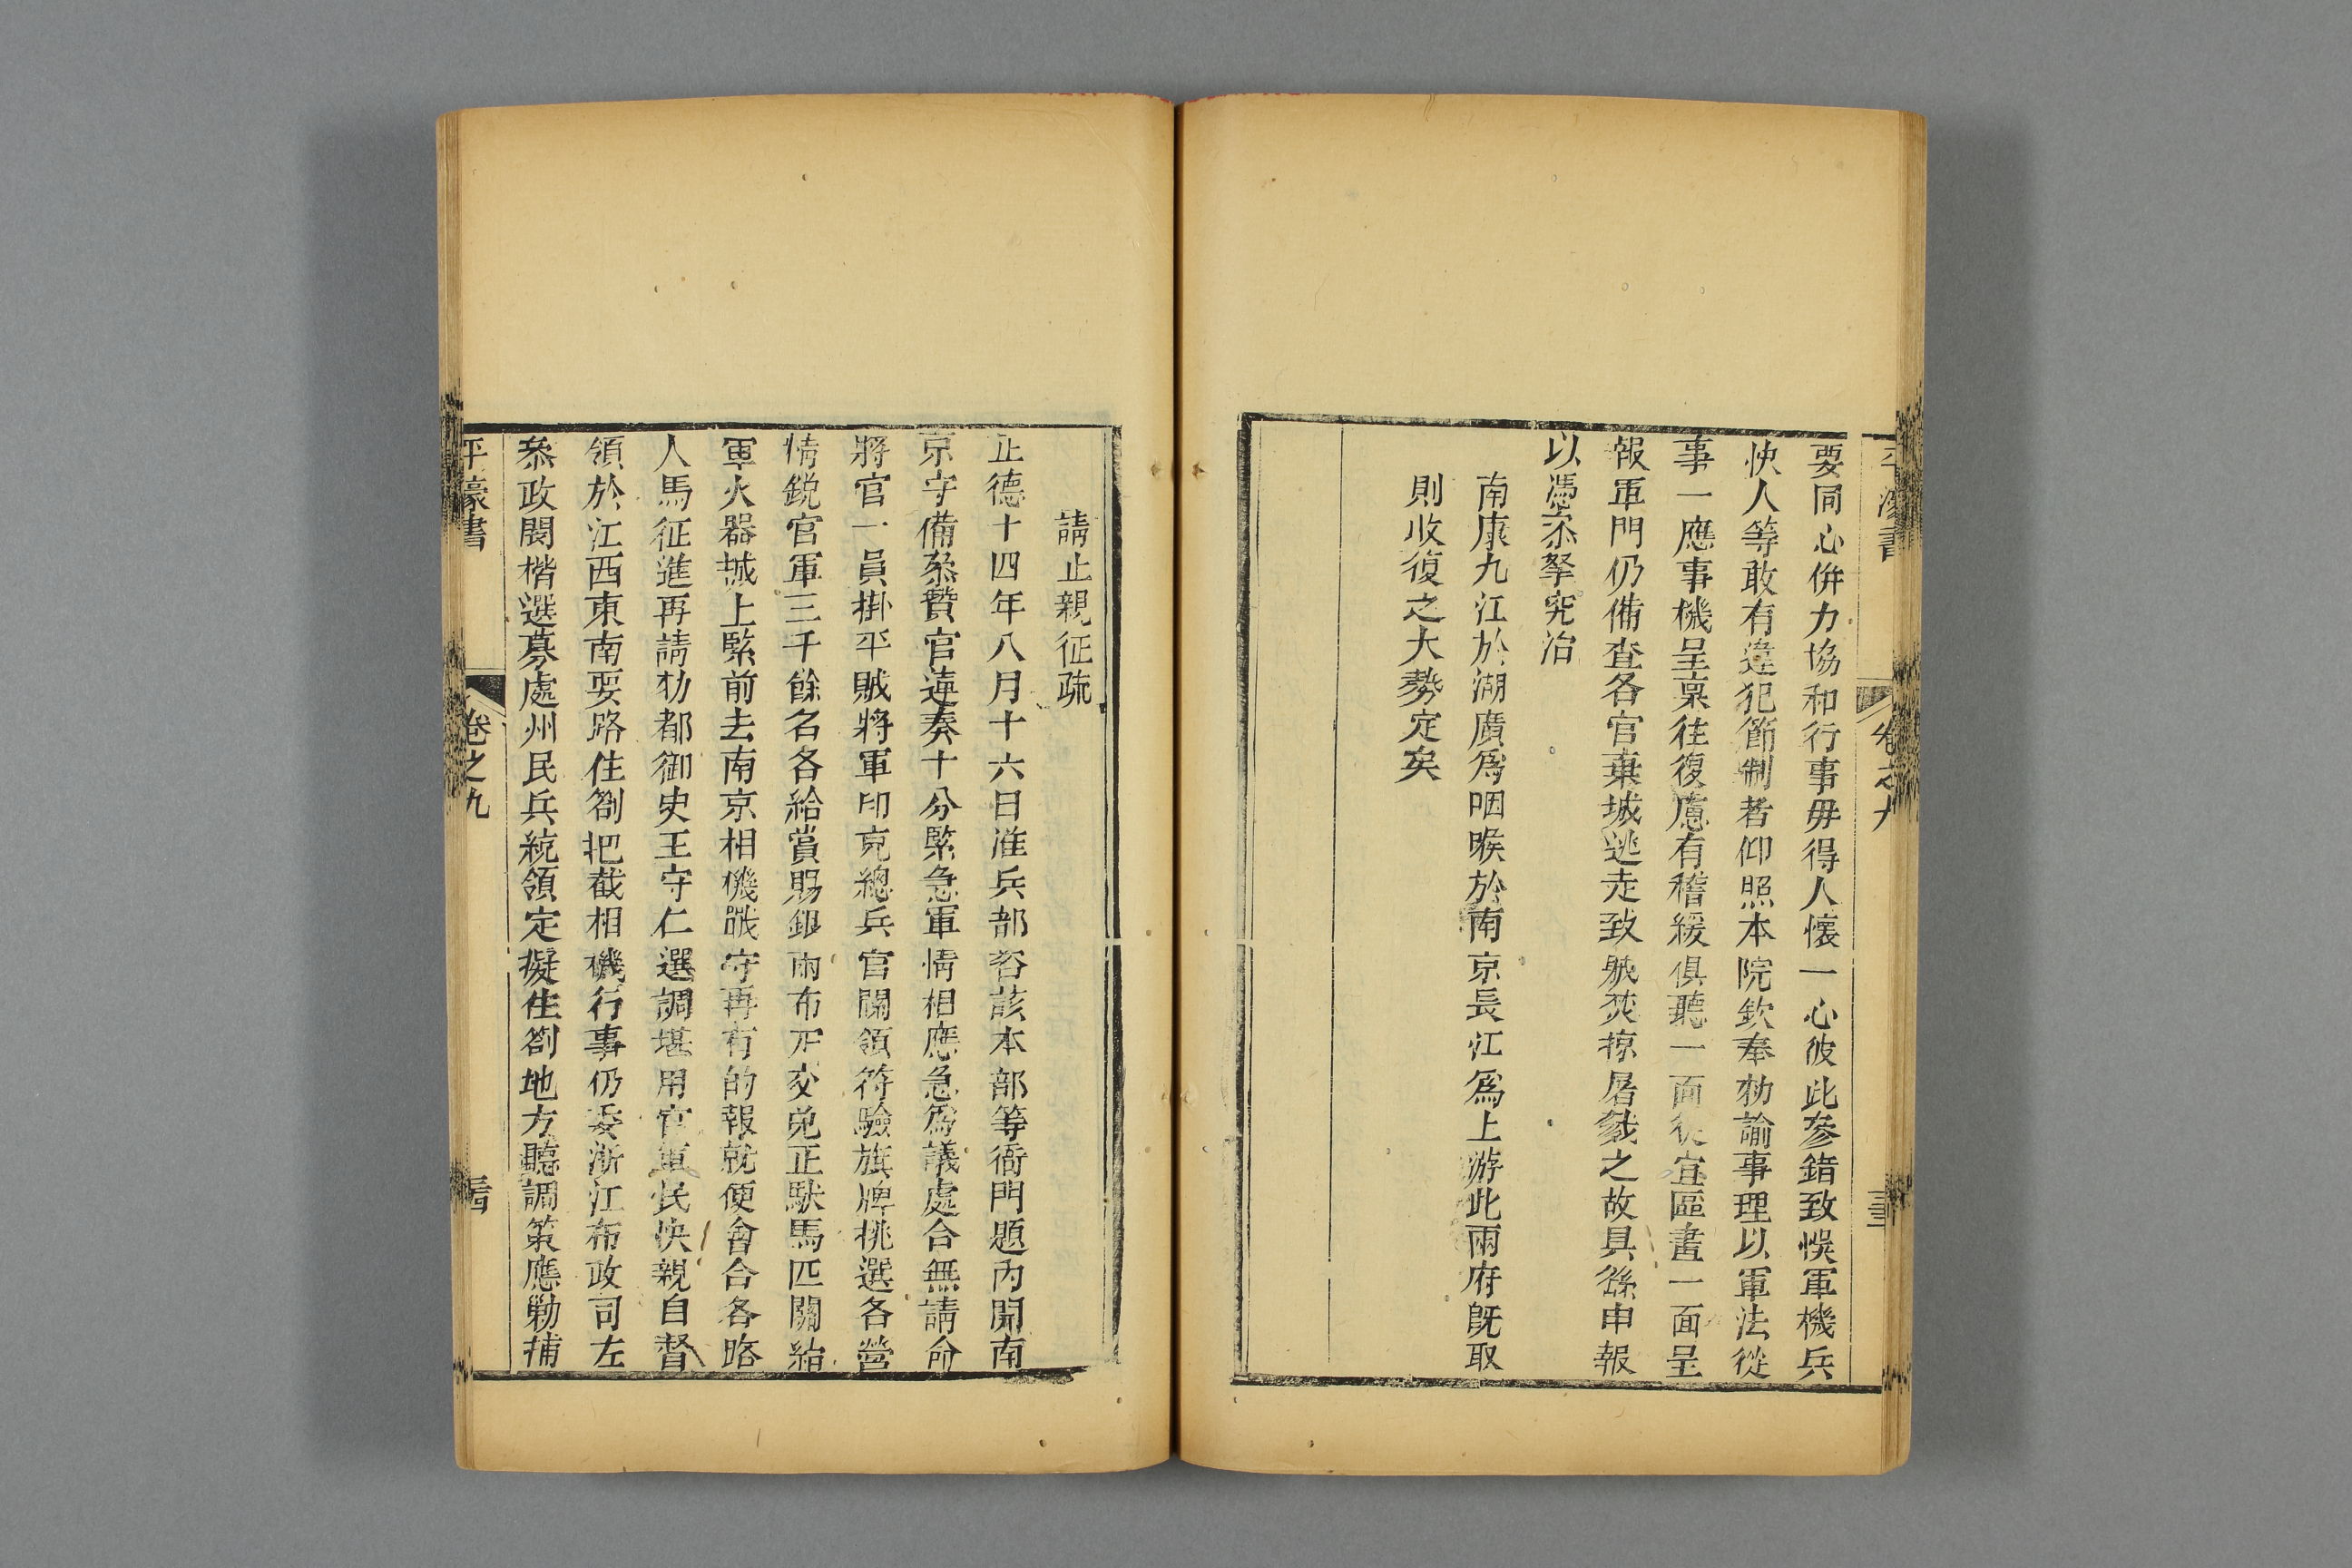 平濠書
卷之九
要同心併力協和行事毋得人懷一心彼此參錯致悞軍機兵
快人等敢有違犯節制者仰照本院欽奉勑諭事理以軍法從
事一應事機呈稟往復慮有稽緩俱聽一面從宜區畫一面呈
報軍門仍備查各官棄城逃走致賊焚掠屠戮之故具繇申報
以憑叅拏究治
南康九江於湖廣爲咽喉於南京長江爲上游此兩府旣取
則收復之大勢定矣
請止親征疏
正德十四年八月十六日准兵部咨該本部等衙門題內開南
京守備叅贊官連奏十分緊急軍情相應急爲議處合無請命
將官一員掛平賊將軍印充總兵官關領符驗旗牌挑選各營
情鋭官軍三千餘名各給賞賜銀兩布疋交兌正馱馬匹關給
軍火器械上緊前去南京相機戰守再有的報就便會合各路
人馬征進再請勑都御史王守仁選調堪用官軍民快親自督
領於江西東南要路住劄把截相機行事仍委浙江布政司左
叅政閔楷選募處州民兵統領定擬住劄地方聽調策應勦捕
平濠書
卷之九